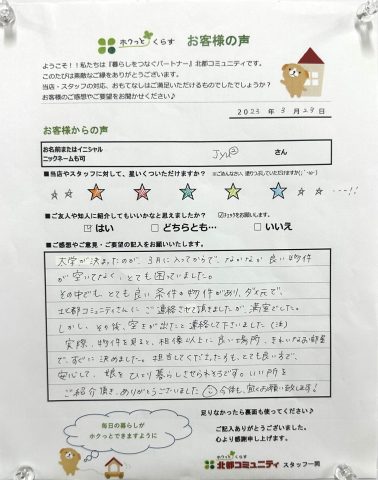 ホクっと くらす お客様の声
ようこそ！！私たちは『暮らしをつなぐパートナー』北都コミュニティです。
このたびは素敵なご縁をありがとうございます。
当店・スタッフの対応、おもてなしはご満足いただけるものでしたでしょうか？
お客様のご感想やご要望をお聞かせください♪
2023 年 3 月 29 日
お客様からの声
お名前またはイニシャル
ニックネームも可
さん
■当店やスタッフに対して、星いくついただけますか？
■ご友人や知人に紹介してもいいかなと思えましたか？ ☑チェックをお願いします。
☑はい □どちらとも… □いいえ
■ご感想やご意見・ご要望の記入をお願いいたします。
大学が決まったのが、3月に入ってからで、なかなか良い物件
が空いてなく、とても困っていました。
その中でも、とても良い条件の物件があり、ダメ元で、
北都コミュニティさんにご連絡させて頂きましたが、満室でした。
しかし、その後、空きが出たと連絡して下さいました（涙）
実際、物件を見ると、想像以上に良い場所、きれいなお部屋
で、すぐに決めました。担当してくださった方も、とても良い方で、
安心して、娘をひとり暮らしさせられそうです。いい所を
ご紹介頂き、ありがとうございました 今後も、宜しくお願い致します！
足りなかったら裏面も使ってください♪
毎日の暮らしが
ホクっとできますように
ご記入ありがとうございました。
心より感謝申し上げます。
ホクっと くらす
北都コミュニティ スタッフ一同